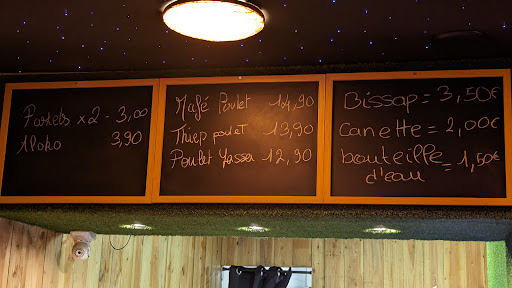 Pastels x2 - 3,00
Aloko 3,90
Mafé Poulet 14,90
Thiep poulet 13,90
Poulet Yassa 12,90
Bissap = 3,50€
Canette = 2,00€
bouteille d'eau = 1,50€